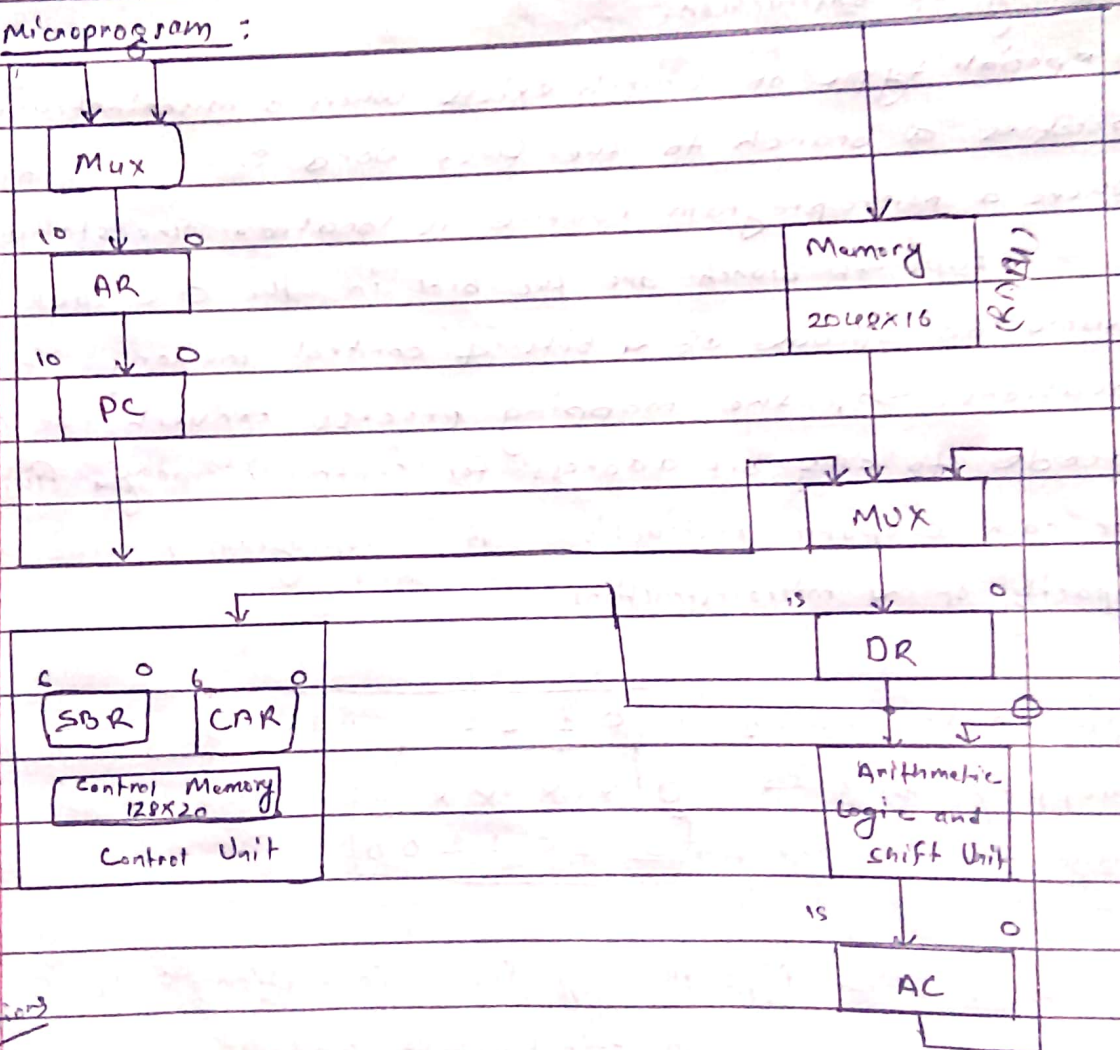 Microprogram :
Mux
10 0
AR
10 0
PC
Memory
2048X16
(RAM)
MUX
15 0
DR
6 0 6 0
SBR CAR
Control Memory
128X20
Control Unit
Arithmetic
Logic and
Shift Unit
15 0
AC